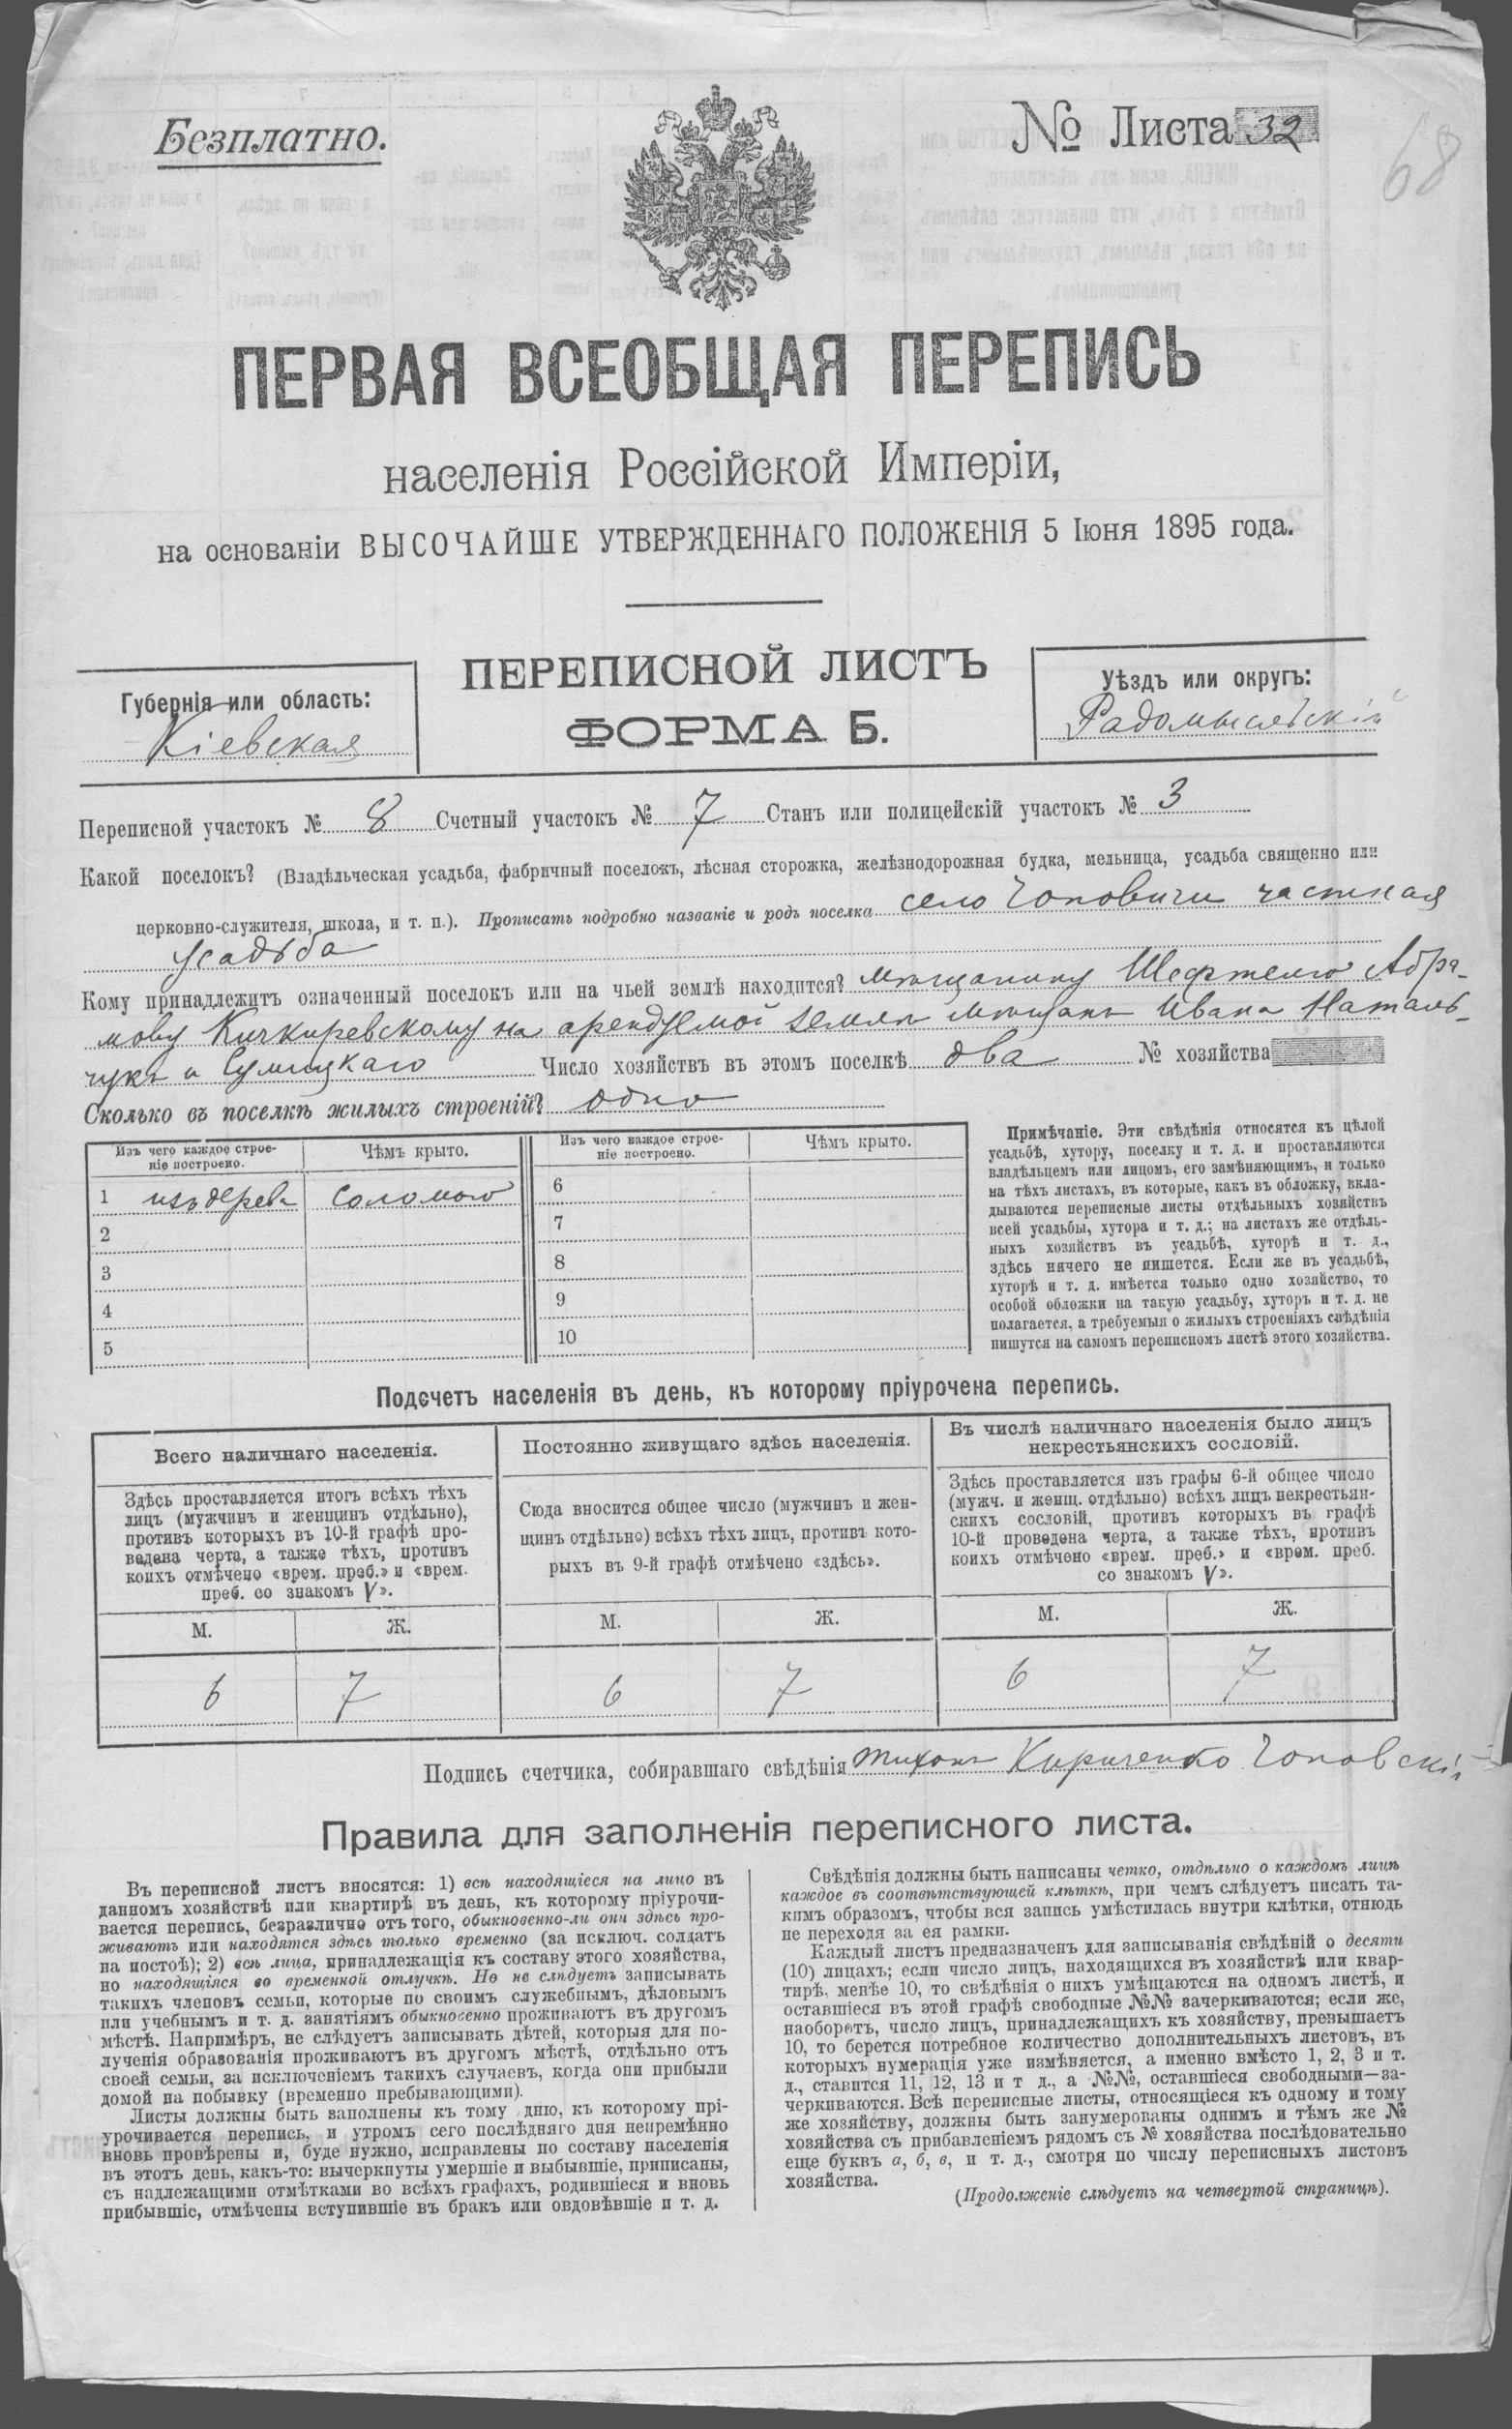 Безплатно.
№ Листа 32
68
ПЕРВАЯ ВСЕОБЩАЯ ПЕРЕПИСЬ
населенія Россійской Имперіи,
на основаніи ВЫСОЧАЙШЕ УТВЕРЖДЕННАГО ПОЛОЖЕНІЯ 5 Іюня 1895 года.
Губернія или область:
Кіевская
ПЕРЕПИСНОЙ ЛИСТЪ
ФОРМА Б.
Уѣздъ или округъ:
Радомысльскій
Переписной участокъ № 8 Счетный участокъ № 7 Станъ или полицейскій участокъ № 3
Какой поселокъ? (Владѣльческая усадьба, фабричный поселокъ, лѣсная сторожка, желѣзнодорожная будка, мельница, усадьба священно или
церковно-служителя, школа, и т. п.). Прописать подробно названіе и родъ поселка село Чоповичи частная
усадьба
Кому принадлежитъ означенный поселокъ или на чьей землѣ находится? мѣщанину Шефтелю Абра-
мову Кичкиревскому на арендуемой землѣ мѣщанъ Ивана Наталь-
чукъ и Сумицкаго Число хозяйствъ въ этомъ поселкѣ два № хозяйства
Сколько въ поселкѣ жилыхъ строеній? одно
Изъ чего каждое строе-
ніе построено.
Чѣмъ крыто.
Изъ чего каждое строе-
ніе построено.
Чѣмъ крыто.
1 изъ дерева соломою
2
3
4
5
6
7
8
9
10
Примѣчаніе. Эти свѣдѣнія относятся къ цѣлой
усадьбѣ, хутору, поселку и т. д. и проставляются
владѣльцемъ или лицомъ, его замѣняющимъ, и только
на тѣхъ листахъ, въ которые, какъ въ обложку, вкла-
дываются переписные листы отдѣльныхъ хозяйствъ
всей усадьбы, хутора и т. д.; на листахъ же отдѣль-
ныхъ хозяйствъ въ усадьбѣ, хуторѣ и т. д.,
здѣсь ничего не пишется. Если же въ усадьбѣ,
хуторѣ и т. д. имѣется только одно хозяйство, то
особой обложки на такую усадьбу, хуторъ и т. д. не
полагается, а требуемыя о жилыхъ строеніяхъ свѣдѣнія
пишутся на самомъ переписномъ листѣ этого хозяйства.
Подсчетъ населенія въ день, къ которому пріурочена перепись.
Всего наличнаго населенія.
Здѣсь проставляется итогъ всѣхъ тѣхъ
лицъ (мужчинъ и женщинъ отдѣльно),
противъ которыхъ въ 10-й графѣ про-
ведена черта, а также тѣхъ, противъ
коихъ отмѣчено «врем. преб.» и «врем.
преб. со знакомъ V».
Постоянно живущаго здѣсь населенія.
Сюда вносится общее число (мужчинъ и жен-
щинъ отдѣльно) всѣхъ тѣхъ лицъ, противъ кото-
рыхъ въ 9-й графѣ отмѣчено «здѣсь».
Въ числѣ наличнаго населенія было лицъ
некрестьянскихъ сословій.
Здѣсь проставляется изъ графы 6-й общее число
(мужч. и женщ. отдѣльно) всѣхъ лицъ некрестьян-
скихъ сословій, противъ которыхъ въ графѣ
10-й проведена черта, а также тѣхъ, противъ
коихъ отмѣчено «врем. преб.» и «врем. преб.
со знакомъ V».
М. Ж. М. Ж. М. Ж.
6 7 6 7 6 7
Подпись счетчика, собиравшаго свѣдѣнія Тихонъ Кириченко Чоповскій
Правила для заполненія переписного листа.
Въ переписной листъ вносятся: 1) всѣ находящіеся на лицо въ
данномъ хозяйствѣ или квартирѣ въ день, къ которому пріурочи-
вается перепись, безразлично отъ того, обыкновенно-ли они здѣсь про-
живаютъ или находятся здѣсь только временно (за исключ. солдатъ
на постоѣ); 2) всѣ лица, принадлежащія къ составу этого хозяйства,
но находящіяся во временной отлучкѣ. Но не слѣдуетъ записывать
такихъ членовъ семьи, которые по своимъ служебнымъ, дѣловымъ
или учебнымъ и т. д. занятіямъ обыкновенно проживаютъ въ другомъ
мѣстѣ. Напримѣръ, не слѣдуетъ записывать дѣтей, которыя для по-
лученія образованія проживаютъ въ другомъ мѣстѣ, отдѣльно отъ
своей семьи, за исключеніемъ такихъ случаевъ, когда они прибыли
домой на побывку (временно пребывающими).
Листы должны быть заполнены къ тому дню, къ которому прі-
урочивается перепись, и утромъ сего послѣдняго дня непремѣнно
вновь провѣрены и, буде нужно, исправлены по составу населенія
въ этотъ день, какъ-то: вычеркнуты умершіе и выбывшіе, приписаны,
съ надлежащими отмѣтками во всѣхъ графахъ, родившіеся и вновь
прибывшіе, отмѣчены вступившіе въ бракъ или овдовѣвшіе и т. д.
Свѣдѣнія должны быть написаны четко, отдѣльно о каждомъ лицѣ
каждое въ соотвѣтствующей клѣткѣ, при чемъ слѣдуетъ писать та-
кимъ образомъ, чтобы вся запись умѣстилась внутри клѣтки, отнюдь
не переходя за ея рамки.
Каждый листъ предназначенъ для записыванія свѣдѣній о десяти
(10) лицахъ; если число лицъ, находящихся въ хозяйствѣ или квар-
тирѣ, менѣе 10, то свѣдѣнія о нихъ умѣщаются на одномъ листѣ, и
оставшіеся въ этой графѣ свободные №№ зачеркиваются; если же,
наоборотъ, число лицъ, принадлежащихъ къ хозяйству, превышаетъ
10, то берется потребное количество дополнительныхъ листовъ, въ
которыхъ нумерація уже измѣняется, а именно вмѣсто 1, 2, 3 и т.
д., ставится 11, 12, 13 и т д., а №№, оставшіеся свободными—за-
черкиваются. Всѣ переписные листы, относящіеся къ одному и тому
же хозяйству, должны быть занумерованы однимъ и тѣмъ же №
хозяйства съ прибавленіемъ рядомъ съ № хозяйства послѣдовательно
еще буквъ а, б, в, и т. д., смотря по числу переписныхъ листовъ
хозяйства.
(Продолженіе слѣдуетъ на четвертой страницѣ).